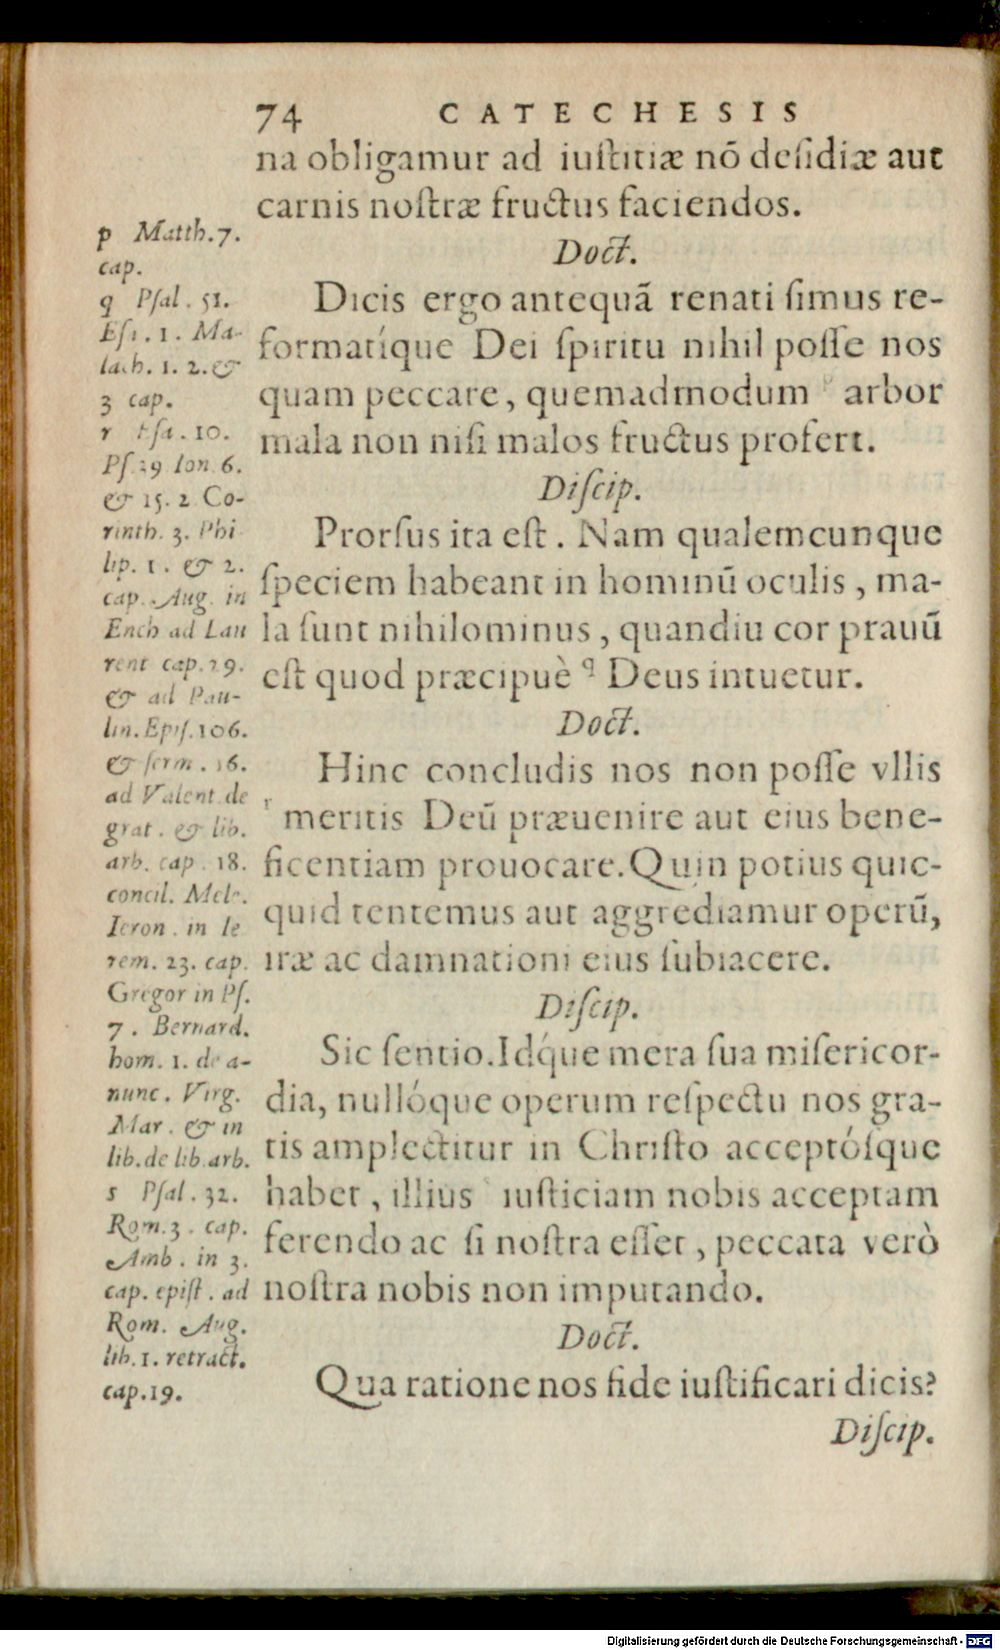 74 CATECHESIS
na obligamur ad iuſtitiæ nō deſidiæ aut
carnis noſtræ fructus faciendos.
Doct.
Dicis ergo antequā renati ſimus re-
formatíque Dei ſpiritu nihil poſſe nos
quam peccare, quemadmodum p arbor
mala non niſi malos fructus profert.
Diſcip.
Prorſus ita eſt. Nam qualemcunque
ſpeciem habeant in hominū oculis, ma-
la ſunt nihilominus, quandiu cor prauū
eſt quod præcipuè q Deus intuetur.
Doct.
Hinc concludis nos non poſſe vllis
r meritis Deū præuenire aut eius bene-
ficentiam prouocare. Quin potius quic-
quid tentemus aut aggrediamur operū,
iræ ac damnationi eius ſubiacere.
Diſcip.
Sic ſentio. Idq́ue mera ſua miſericor-
dia, nullóque operum reſpectu nos gra-
tis amplectitur in Chriſto acceptóſque
habet, illius s iuſticiam nobis acceptam
ferendo ac ſi noſtra eſſet, peccata verò
noſtra nobis non imputando.
Doct.
Qua ratione nos fide iuſtificari dicis?
Diſcip.
p Matth. 7.
cap.
q Pſal. 51.
Eſi. 1. Ma-
lach. 1. 2. &
3 cap.
r Eſa. 10.
Pſ. 29 Ion. 6.
& 15. 2 Co-
rinth. 3. Phi
lip. 1. & 2.
cap. Aug. in
Ench ad Lau
rent cap. 29.
& ad Pau-
lin. Epiſ. 106.
& ſerm. 16.
ad Valent. de
grat. & lib.
arb. cap. 18.
concil. Mele.
Ieron. in Ie
rem. 23. cap.
Gregor in Pſ.
7. Bernard.
hom. 1. de a-
nunc. Virg.
Mar. & in
lib. de lib. arb.
s Pſal. 32.
Rom. 3. cap.
Amb. in 3.
cap. epiſt. ad
Rom. Aug.
lib. 1. retract.
cap. 19.
Digitalisierung gefördert durch die Deutsche Forschungsgemeinschaft - DFG